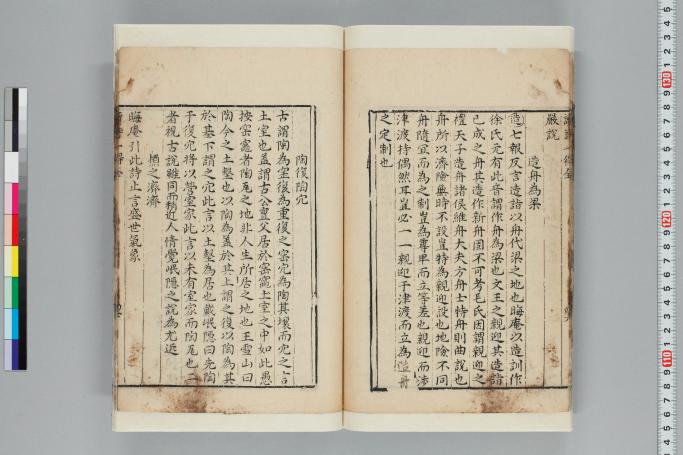 嚴說
造舟為梁
造七報反言造詣以舟代梁之地也晦庵以造訓作
徐氏元有此音謂作舟為梁也文王之親迎其造詣
已成之舟其造作新舟固不可考毛氏因謂親迎之
禮天子造舟諸侯維舟大夫方舟士特舟則曲說也
舟所以濟險無時不設豈特為親迎設也地險不同
舟隨宜而為之制豈為尊卑而立等差也親迎而涉
津渡特偶然耳豈必一一親迎于津渡而立為造舟
之定制也
陶復陶穴
古謂陶為窑復為重復之窑穴為陶其壤而穴之言
土室也蓋謂古公亶父居於窑竈土室之中如此愚
按窑竈者陶瓦之地非人生所居之地也王雪山曰
陶今之土墼也以陶為蓋於其上謂之復以陶為其
於基下謂之穴此言以土墼為居也戴岷隱曰先陶
于復穴將以營室家此言以未有室家而陶瓦也二
者視古說雖同而稍近人情覺岷隱之說為尤近
楢之濟濟
晦庵引此詩止言盛世氣象